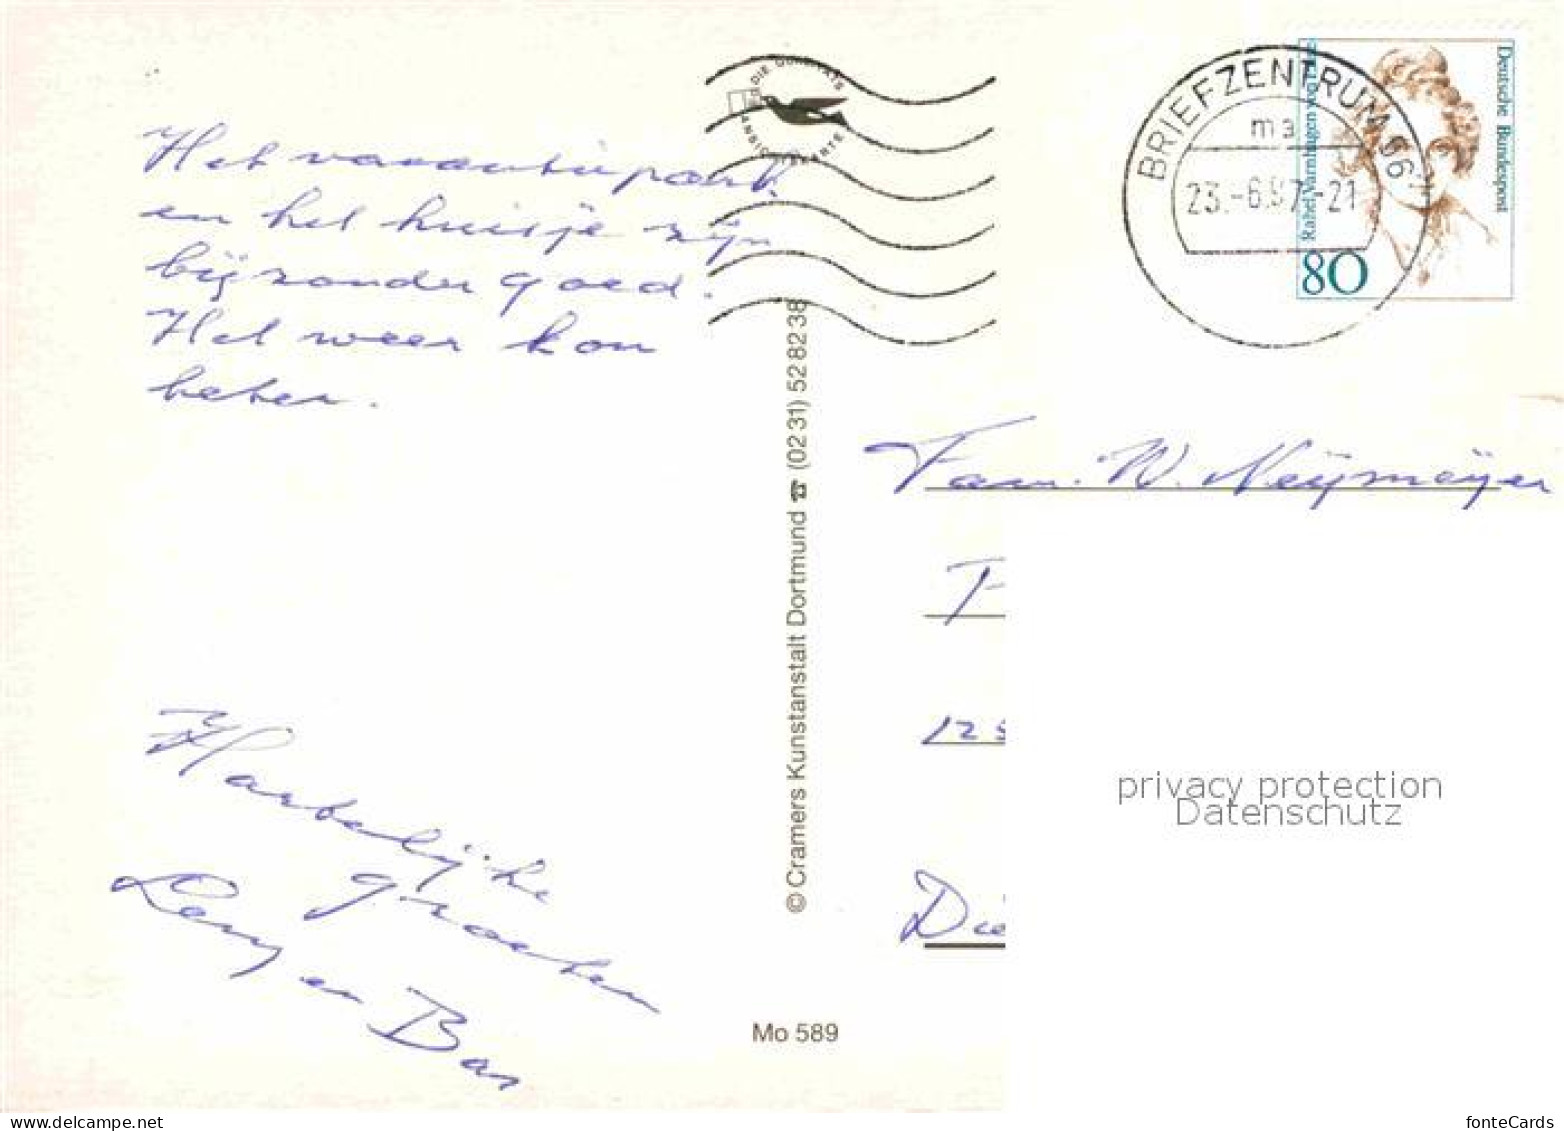 Het vacantiepark
en het huisje zijn
bijzonder goed.
Het weer kon
beter.
Hartelijke
groeten
Leny en Bas
DIE QUALITÄTS
ANSICHTSKARTE
© Cramers Kunstanstalt Dortmund ☎ (0231) 528238
Mo 589
BRIEFZENTRUM 96
ma
23.-6.97-21
Deutsche Bundespost
Rahel Varnhagen von Ense
80
Fam. W. Neijmeijer
F
125
Die
privacy protection
Datenschutz
fonteCards